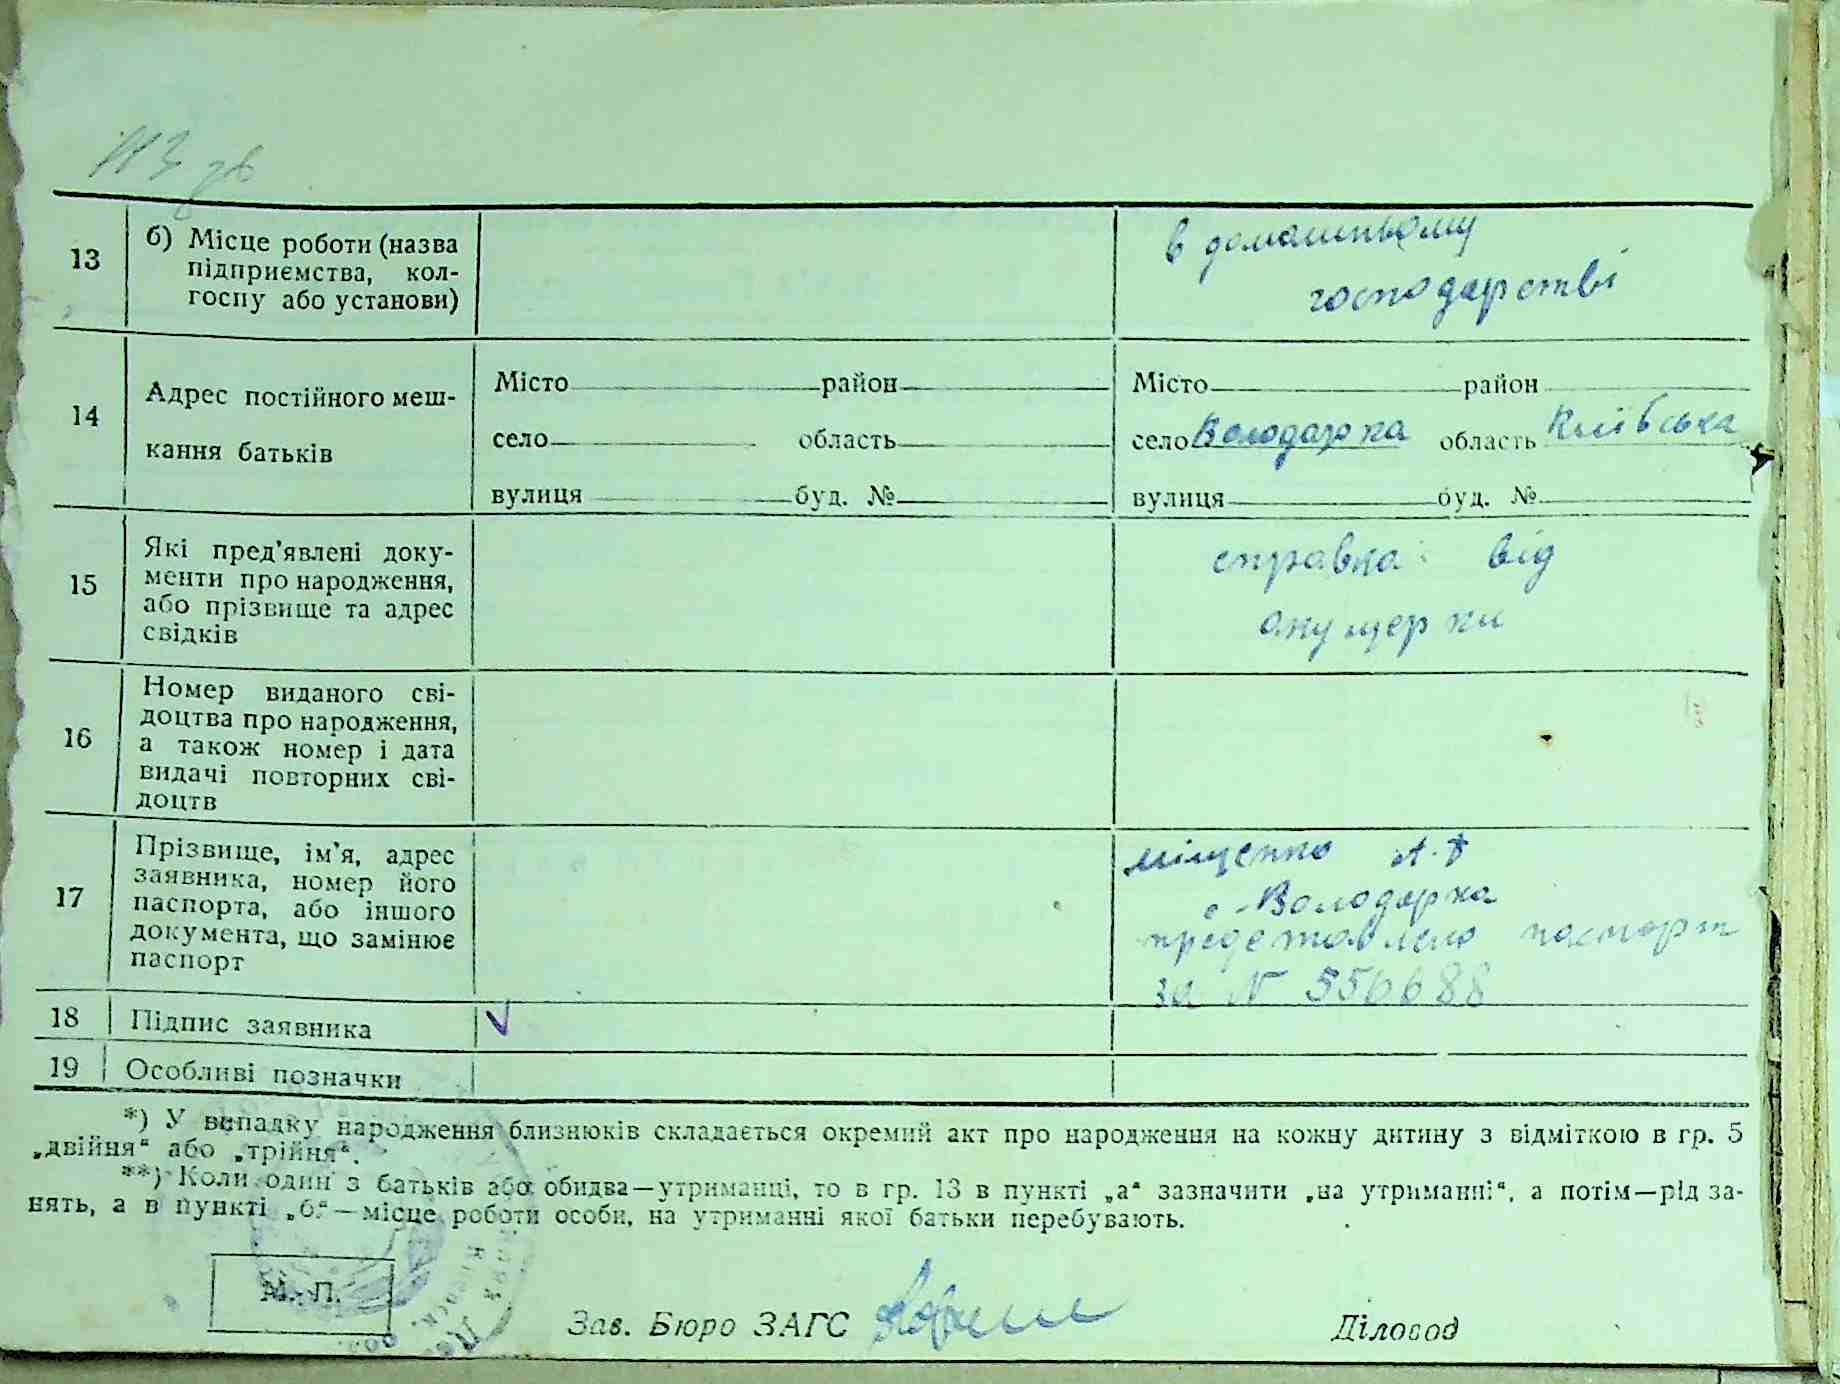 113 зв
13 б) Місце роботи (назва
підприємства, кол-
госпу або установи)
в домашньому
господарстві
14 Адрес постійного меш-
кання батьків
Місто район
село область
вулиця буд. №
Місто район
село Володарка область Київська
вулиця буд. №
15 Які пред'явлені доку-
менти про народження,
або прізвище та адрес
свідків
справка від
акушерки
16 Номер виданого сві-
доцтва про народження,
а також номер і дата
видачі повторних сві-
доцтв
17 Прізвище, ім'я, адрес
заявника, номер його
паспорта, або іншого
документа, що замінює
паспорт
Міщенко А.
с. Володарка
представлено паспорт
за N 556688
18 Підпис заявника
19 Особливі позначки
*) У випадку народження близнюків складається окремий акт про народження на кожну дитину з відміткою в гр. 5
„двійня“ або „трійня“.
**) Коли один з батьків або обидва—утриманці, то в гр. 13 в пункті „а“ зазначити „на утриманні“, а потім—рід за-
нять, а в пункті „б“—місце роботи особи, на утриманні якої батьки перебувають.
М. П.
Зав. Бюро ЗАГС
Діловод